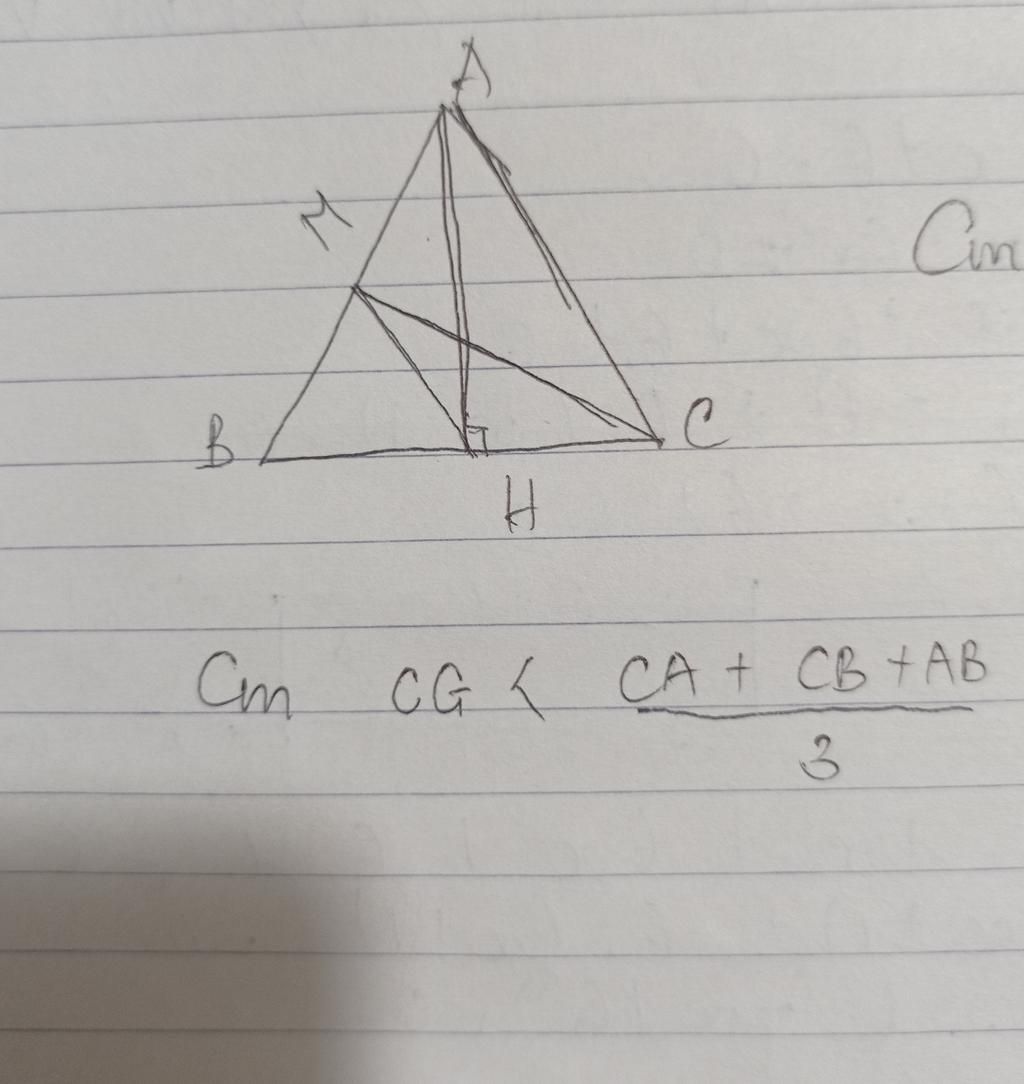 A
M
Cm
B
C
H
Cm CG < CA + CB + AB
3